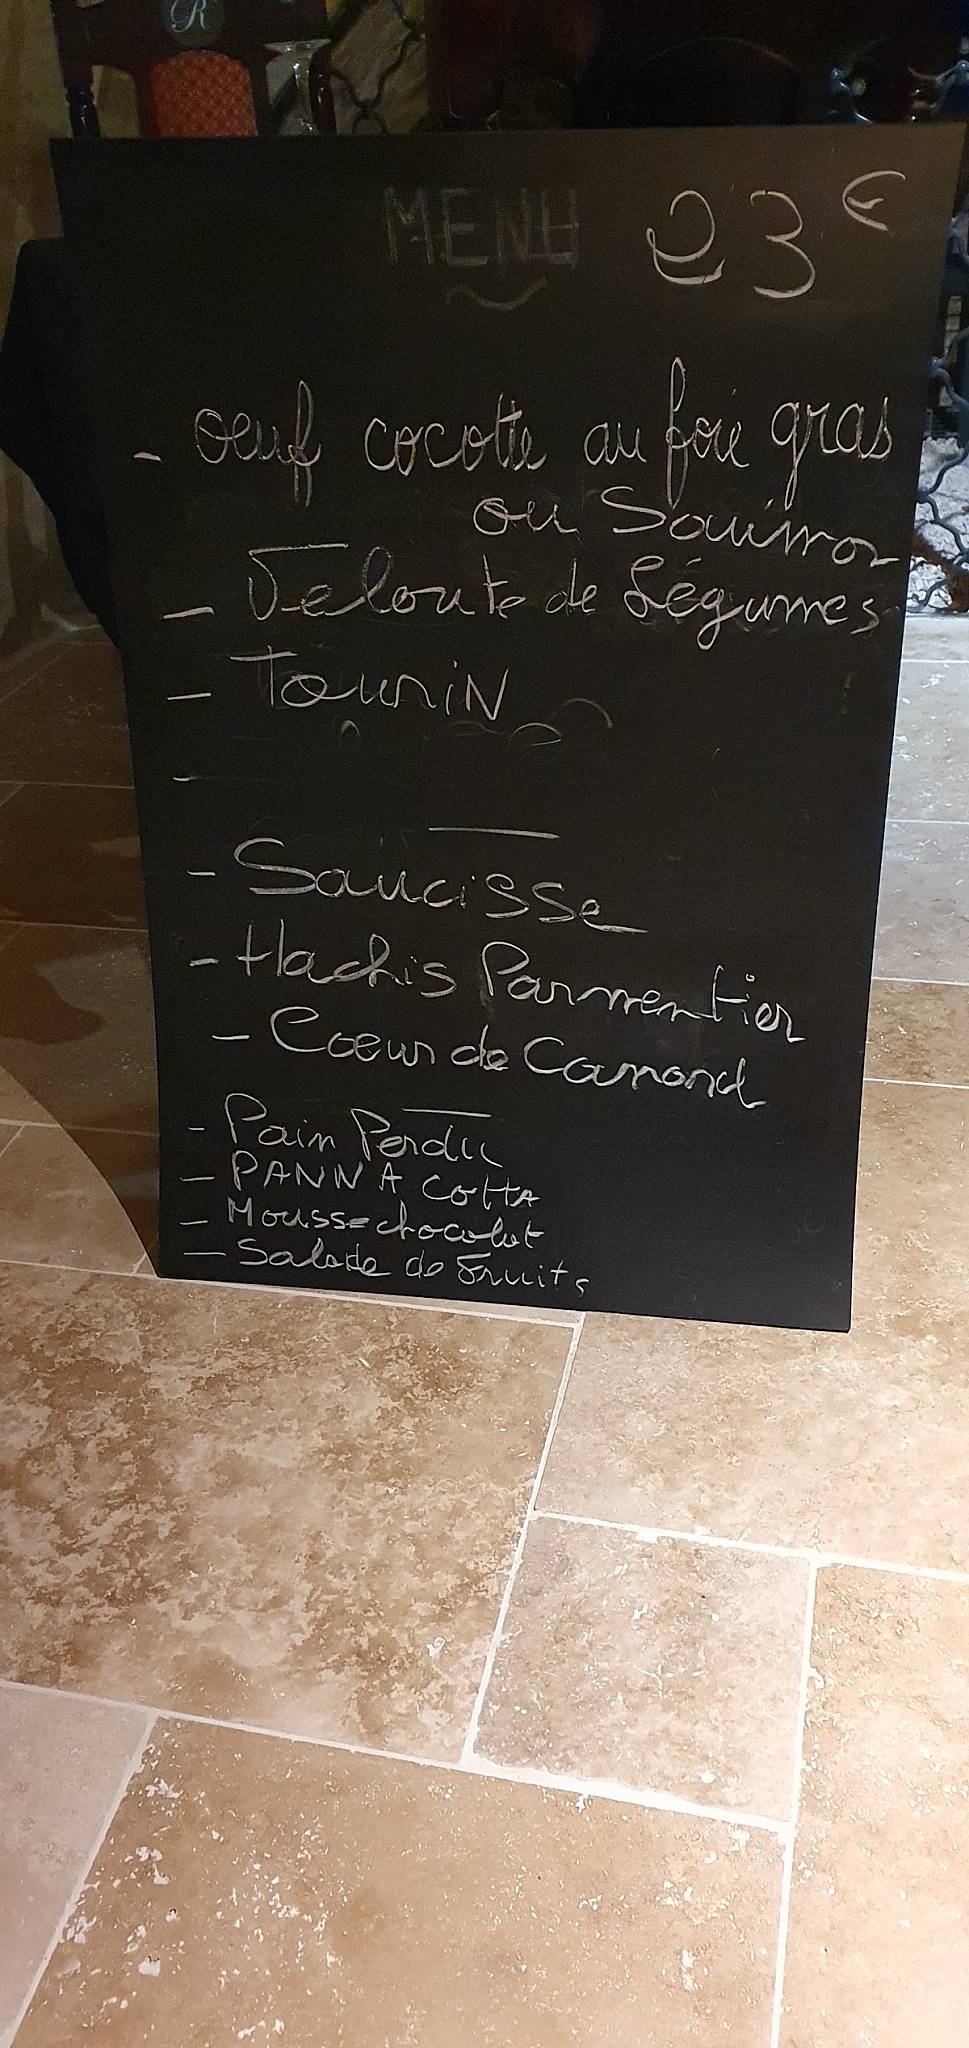 R
MENU 23€
- oeuf cocotte au foie gras
ou Saumon
- Velouté de Légumes
- Tourin
-
- Saucisse
- Hachis Parmentier
- Coeur de Canard
- Pain Perdu
- PANNA COTTA
- Mousse chocolat
- Salade de Fruits